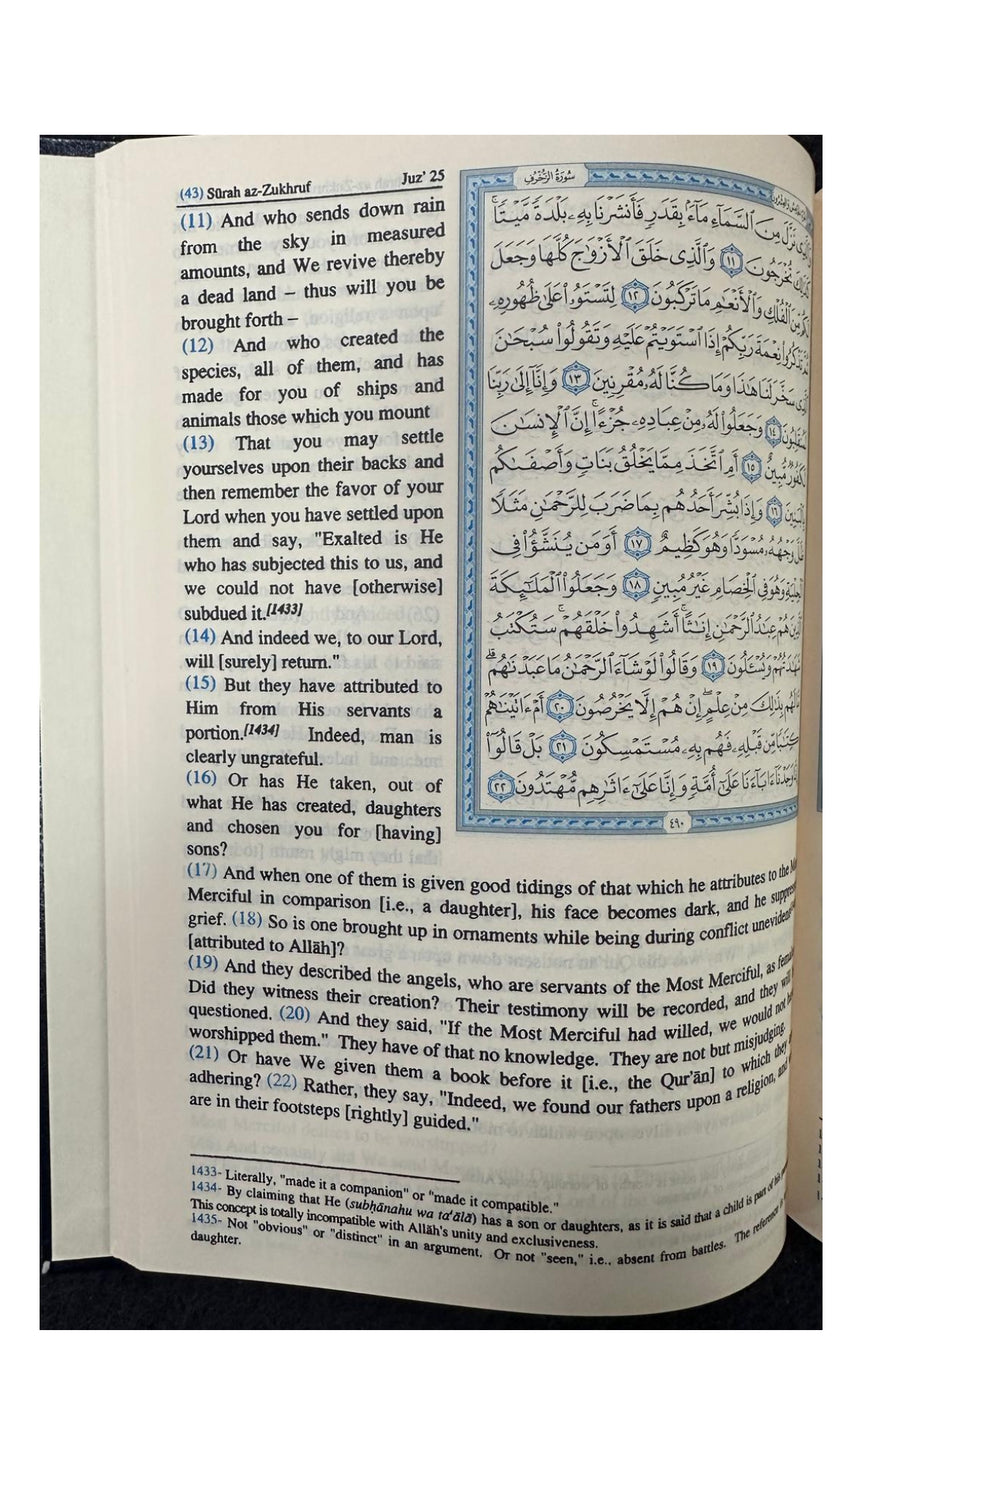 (43) Sūrah az-Zukhruf Juz' 25
(11) And who sends down rain
from the sky in measured
amounts, and We revive thereby
a dead land – thus will you be
brought forth –
(12) And who created the
species, all of them, and has
made for you of ships and
animals those which you mount
(13) That you may settle
yourselves upon their backs and
then remember the favor of your
Lord when you have settled upon
them and say, "Exalted is He
who has subjected this to us, and
we could not have [otherwise]
subdued it.[1433]
(14) And indeed we, to our Lord,
will [surely] return."
(15) But they have attributed to
Him from His servants a
portion.[1434] Indeed, man is
clearly ungrateful.
(16) Or has He taken, out of
what He has created, daughters
and chosen you for [having]
sons?
سُورَةُ الزُّخْرُفِ
نَزَّلَ مِنَ ٱلسَّمَآءِ مَآءًۢ بِقَدَرٍ فَأَنشَرْنَا بِهِۦ بَلْدَةً مَّيْتًا ۚ
تُخْرَجُونَ ١١ وَٱلَّذِى خَلَقَ ٱلْأَزْوَٰجَ كُلَّهَا وَجَعَلَ
مِّنَ ٱلْفُلْكِ وَٱلْأَنْعَٰمِ مَا تَرْكَبُونَ ١٢ لِتَسْتَوُۥا۟ عَلَىٰ ظُهُورِهِۦ
تَذْكُرُوا۟ نِعْمَةَ رَبِّكُمْ إِذَا ٱسْتَوَيْتُمْ عَلَيْهِ وَتَقُولُوا۟ سُبْحَٰنَ
سَخَّرَ لَنَا هَٰذَا وَمَا كُنَّا لَهُۥ مُقْرِنِينَ ١٣ وَإِنَّآ إِلَىٰ رَبِّنَا
١٤ وَجَعَلُوا۟ لَهُۥ مِنْ عِبَادِهِۦ جُزْءًا ۚ إِنَّ ٱلْإِنسَٰنَ
مُّبِينٌ ١٥ أَمِ ٱتَّخَذَ مِمَّا يَخْلُقُ بَنَاتٍ وَأَصْفَىٰكُم
١٦ وَإِذَا بُشِّرَ أَحَدُهُم بِمَا ضَرَبَ لِلرَّحْمَٰنِ مَثَلًا
وَجْهُهُۥ مُسْوَدًّا وَهُوَ كَظِيمٌ ١٧ أَوَمَن يُنَشَّؤُا۟ فِى
وَهُوَ فِى ٱلْخِصَامِ غَيْرُ مُبِينٍ ١٨ وَجَعَلُوا۟ ٱلْمَلَٰٓئِكَةَ
هُمْ عِبَٰدُ ٱلرَّحْمَٰنِ إِنَٰثًا ۚ أَشَهِدُوا۟ خَلْقَهُمْ ۚ سَتُكْتَبُ
وَيُسْـَٔلُونَ ١٩ وَقَالُوا۟ لَوْ شَآءَ ٱلرَّحْمَٰنُ مَا عَبَدْنَٰهُم ۗ
بِذَٰلِكَ مِنْ عِلْمٍ ۖ إِنْ هُمْ إِلَّا يَخْرُصُونَ ٢٠ أَمْ ءَاتَيْنَٰهُمْ
مِّن قَبْلِهِۦ فَهُم بِهِۦ مُسْتَمْسِكُونَ ٢١ بَلْ قَالُوٓا۟
وَجَدْنَآ ءَابَآءَنَا عَلَىٰٓ أُمَّةٍ وَإِنَّا عَلَىٰٓ ءَاثَٰرِهِم مُّهْتَدُونَ ٢٢
٤٩٠
(17) And when one of them is given good tidings of that which he attributes to the
Merciful in comparison [i.e., a daughter], his face becomes dark, and he
grief. (18) So is one brought up in ornaments while being during conflict unevident
[attributed to Allāh]?
(19) And they described the angels, who are servants of the Most Merciful, as
Did they witness their creation? Their testimony will be recorded, and they will
questioned. (20) And they said, "If the Most Merciful had willed, we would not
worshipped them." They have of that no knowledge. They are not but misjudging.
(21) Or have We given them a book before it [i.e., the Qur'ān] to which they
adhering? (22) Rather, they say, "Indeed, we found our fathers upon a religion, and
are in their footsteps [rightly] guided."
1433- Literally, "made it a companion" or "made it compatible."
1434- By claiming that He (subḥānahu wa ta'ālā) has a son or daughters, as it is said that a child is part of his
This concept is totally incompatible with Allāh's unity and exclusiveness.
1435- Not "obvious" or "distinct" in an argument. Or not "seen," i.e., absent from battles. The reference
daughter.